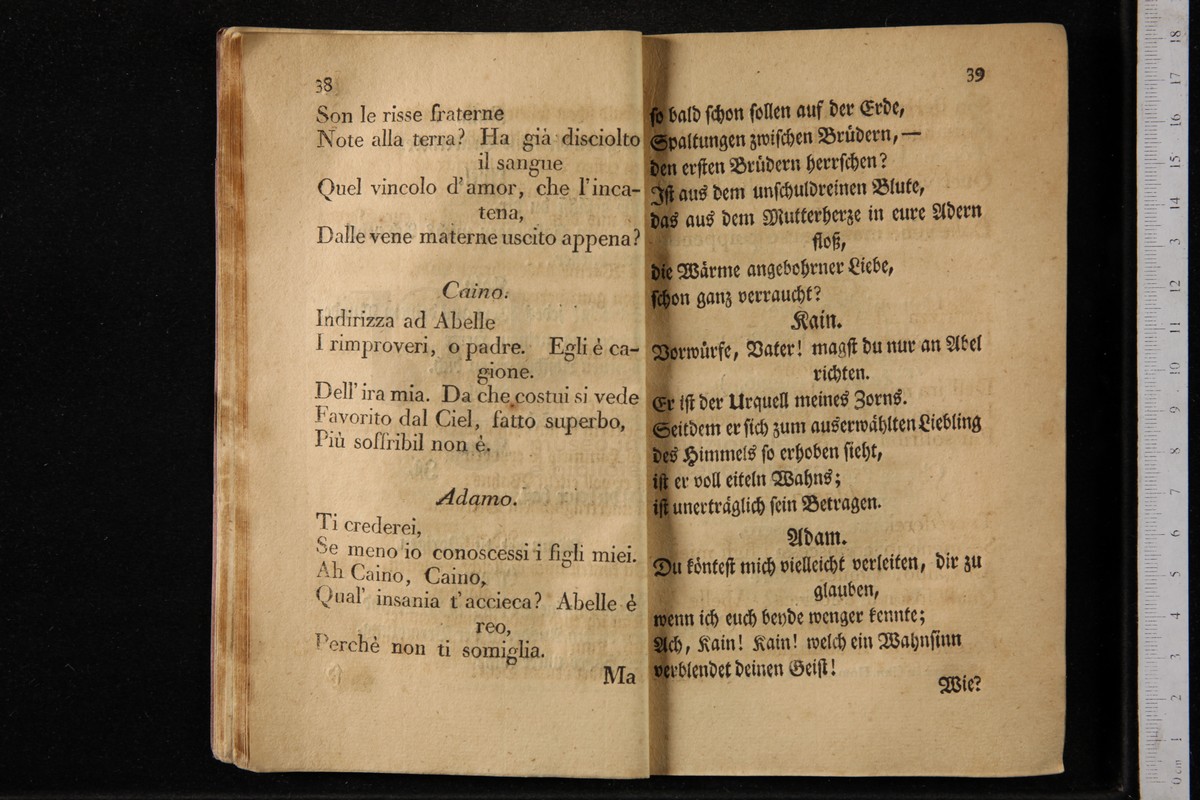 38
Son le risse fraterne
Note alla terra? Ha già disciolto
il sangue
Quel vincolo d'amor, che l'inca-
tena,
Dalle vene materne uscito appena?
Caino.
Indirizza ad Abelle
I rimproveri, o padre. Egli é ca-
gione.
Dell' ira mia. Da che costui si vede
Favorito dal Ciel, fatto superbo,
Più soffribil non é.
Adamo.
Ti crederei,
Se meno io conoscessi i figli miei.
Ah Caino, Caino,
Qual' insania t'accieca? Abelle é
reo,
Perchè non ti somiglia.
Ma
39
so bald schon sollen auf der Erde,
Spaltungen zwischen Brüdern, —
den ersten Brüdern herrschen?
Ist aus dem unschuldreinen Blute,
das aus dem Mutterherze in eure Adern
floß,
die Wärme angebohrner Liebe,
schon ganz verraucht?
Kain.
Vorwürfe, Vater! magst du nur an Abel
richten.
Er ist der Urquell meines Zorns.
Seitdem er sich zum auserwählten Liebling
des Himmels so erhoben sieht,
ist er voll eiteln Wahns;
ist unerträglich sein Betragen.
Adam.
Du köntest mich vielleicht verleiten, dir zu
glauben,
wenn ich euch beyde wenger kennte;
Ach, Kain! Kain! welch ein Wahnsinn
verblendet deinen Geist!
Wie?
0 cm 1 2 3 4 5 6 7 8 9 10 11 12 13 14 15 16 17 18